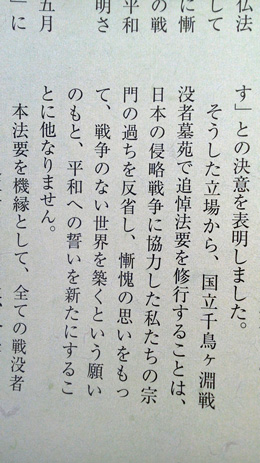 仏法
して
に慚
の戦
平和
明さ
五月
」に
す」との決意を表明しました。
そうした立場から、国立千鳥ヶ淵戦
没者墓苑で追悼法要を修行することは、
日本の侵略戦争に協力した私たちの宗
門の過ちを反省し、慚愧の思いをもっ
て、戦争のない世界を築くという願い
のもと、平和への誓いを新たにするこ
とに他なりません。
本法要を機縁として、全ての戦没者